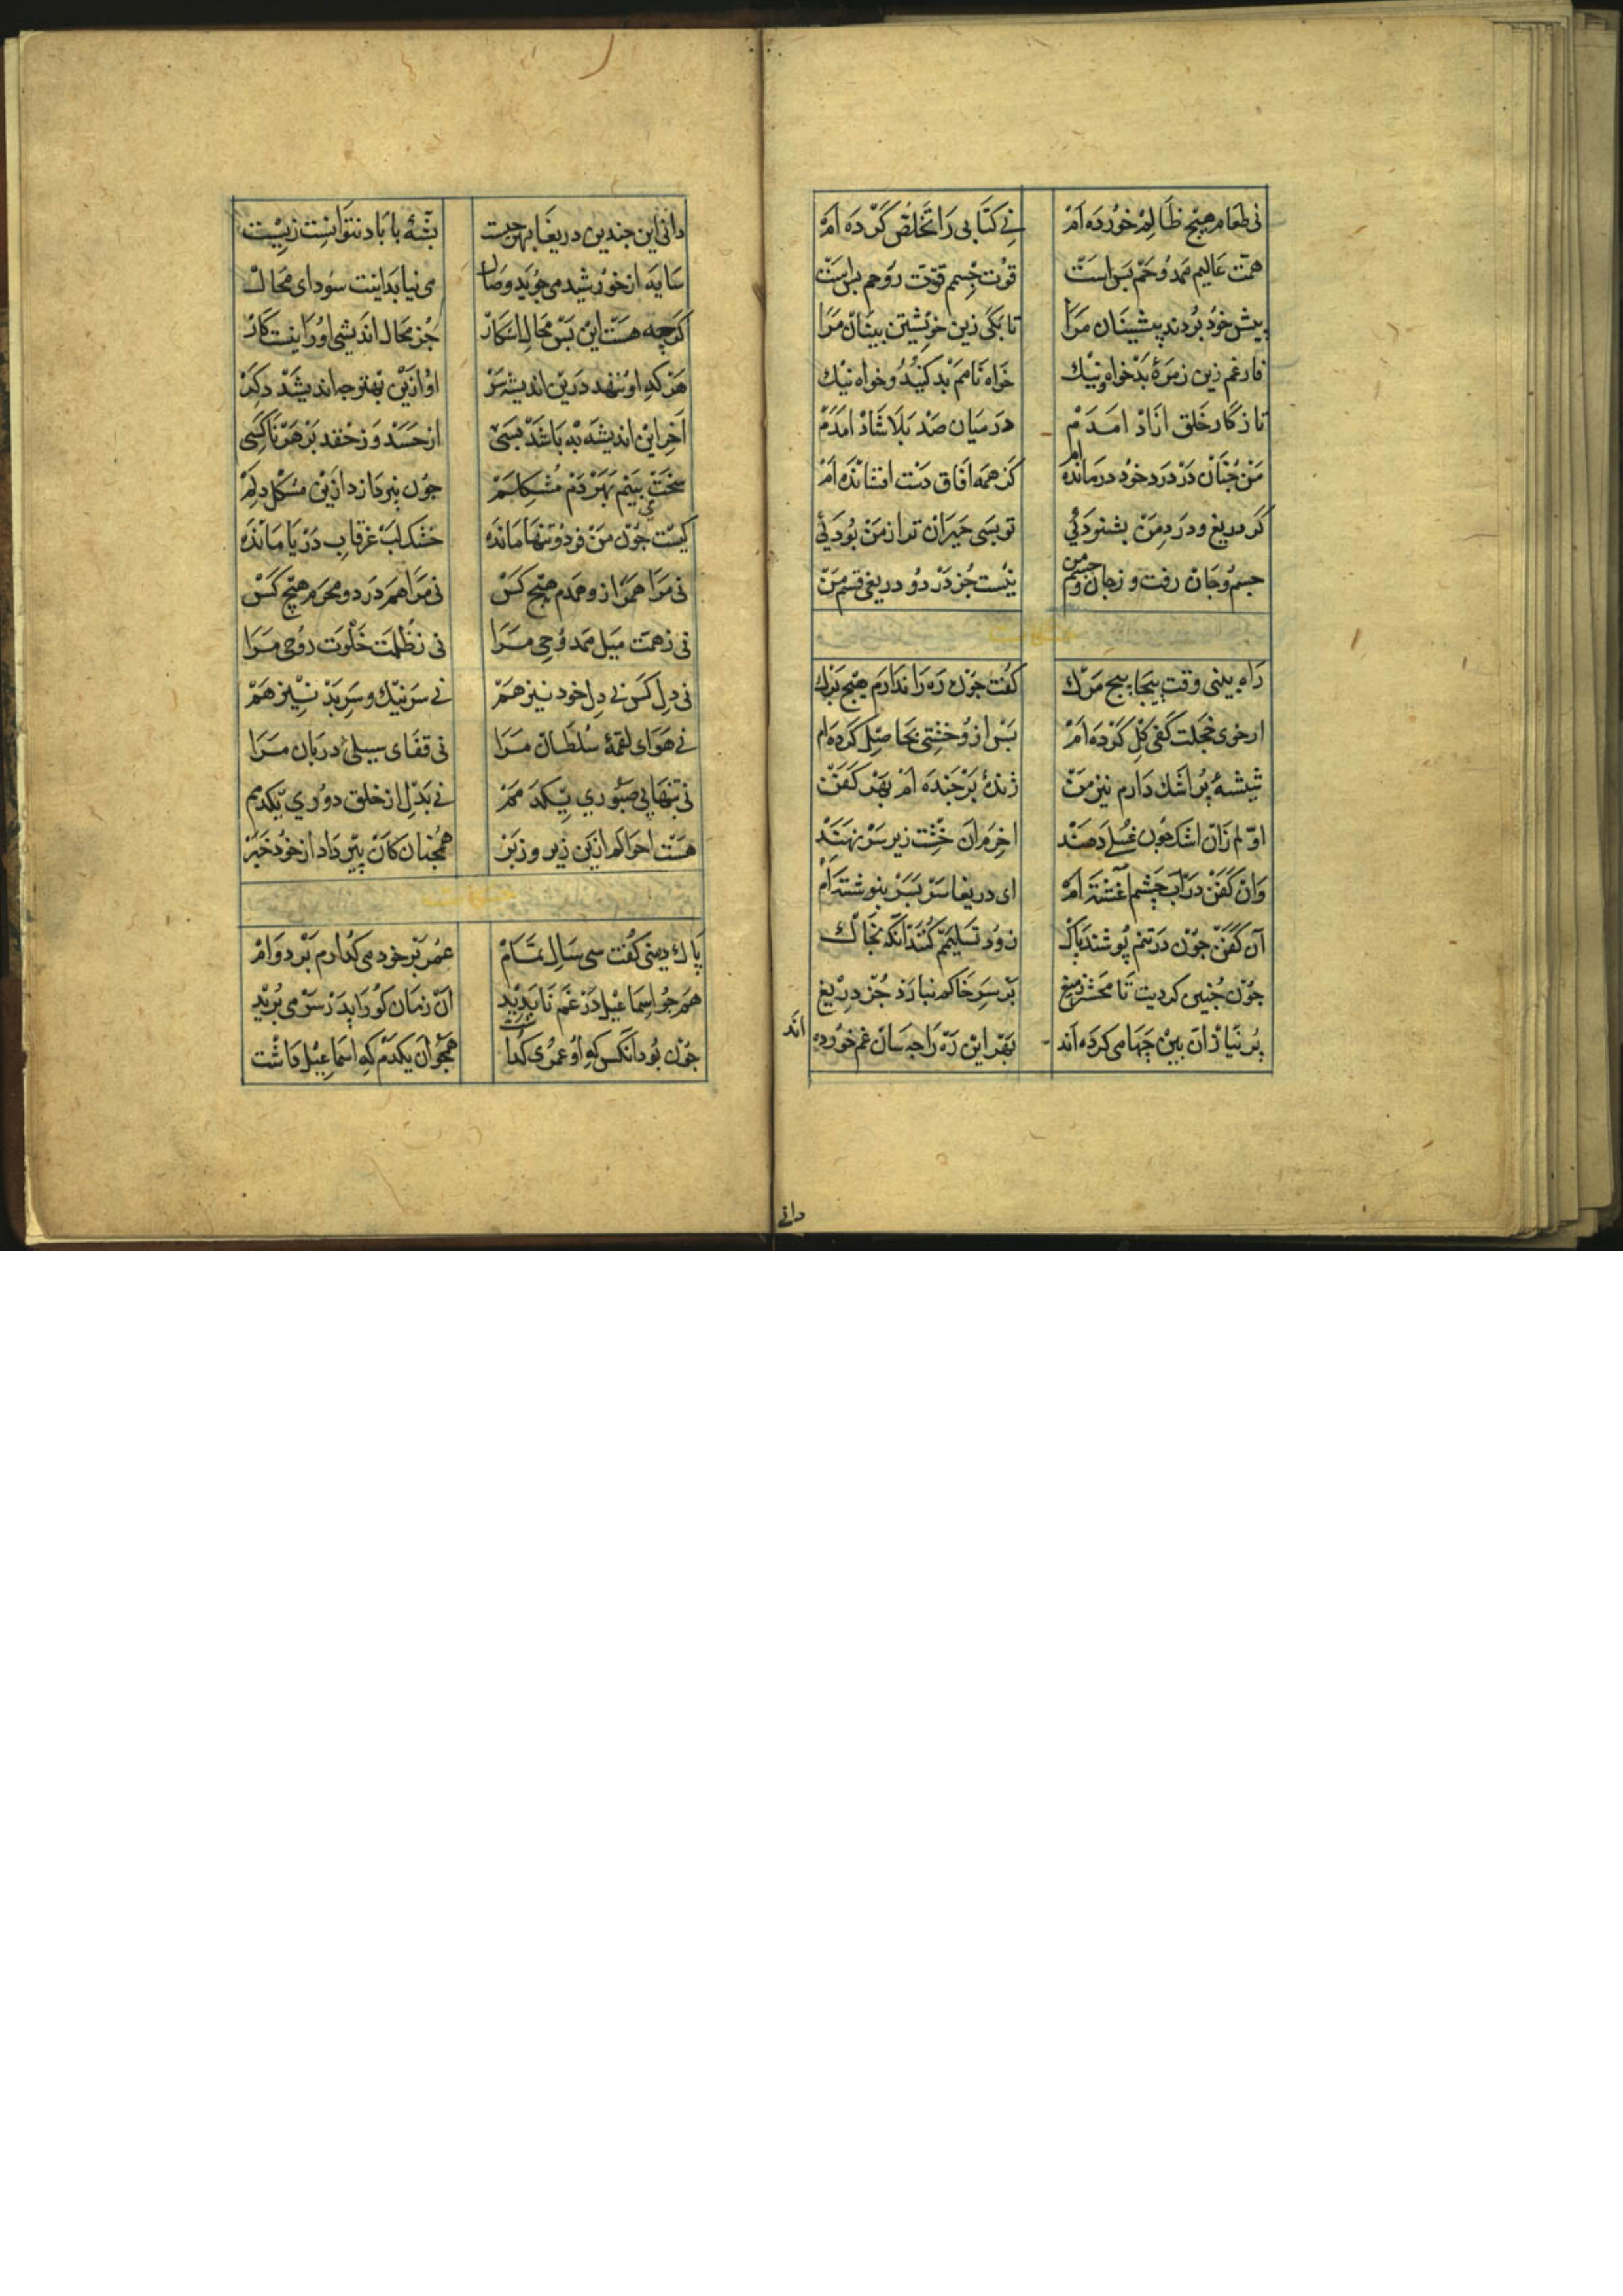 نی طعام هیچ ظالم خورده ام نی کتابی را تخلص کرده ام
همت عالیم ممدوحم بس است قوت جسم قوت روحم بس است
پیش خود بردند پیشینان مرا تا بکی زین خویشتن بینان مرا
فارغم زین زمرهٔ بدخواه نیک خواه نامم بد کنید و خواه نیک
تا ز کار خلق ازاد امدم در میان صد بلا شاد امدم
من جنان در درد خود درمانده ام کز همه افاق دست افشانده ام
کر دریغ و درد من بشنودئی تو بسی حیران تر از من بودئی
جسم و جان رفت و ز جان و جسم من نیست جز درد و دریغی قسم من
راه بینی وقت پیجاپیج مرک کفت جون ره را ندارم هیج برک
از خوی خجلت کفی کل کرده ام بس ازو خشتی بحاصل کرده ام
شیشهٔ پر اشک دارم نیز من ژندهٔ برجنده ام بهر کفن
اولم زان اشک جون غسلی دهند اخرم ان خشت زیر سر نهند
وان کفن در آب چشم آغشته ام ای دریغا سر بسر بنوشته ام
آن کفن جون در تنم پوشند پاک زود تسلیمم کنند آنکه بخاک
جون جنین کردیت تا محشر ز میغ بر سر خاکم نبارد جز دریغ
پر نیازان بین جها می کرده اند بهر این ره را جه سان غم خورده اند
دانی
دانی این جندین دریغا بهر جیست پشهٔ با باد نتوانست زیست
سایه از خورشید می جوید وصال می نیابد اینت سودای محال
کرچه هست این بس محال اشکار جز محال اندیشی او را نیست کار
هر که او ننهد درین اندیشه سر او ازین بهتر جه اندیشد دکر
آخر این اندیشه به باشد بسی از حسد وز حقد بر هر ناکسی
سخت می بینم بهر دم مشکلم جون بپردازد ازین مشکل دلم
کیست جون من فرد و تنها مانده خشک لب غرقاب دریا مانده
نی مرا همراز و همدم هیج کس نی مرا همدرد و محرم هیچ کس
نی ز همت میل ممدوحی مرا نی ز ظلمت خلوت روحی مرا
نی دل کس نی دل خود نیز هم نی سر نیک و سر بد نیز هم
نی هوای لقمهٔ سلطان مرا نی قفای سیلی دربان مرا
نی بتنهایی صبوری یکدمم نی بدل از خلق دوری یکدمم
هست احوالم ازین زیر و زبر همجنان کان پیر داد از خود خبر
پاک دینی کفت سی سال تمام عمر بر خود می کذارم بر دوام
همجو اسماعیل در غم ناپدید آن زمان کو را پدر سر می برید
جون بود آنکس که او عمری کذاشت همجو آن یکدم که اسماعیل داشت